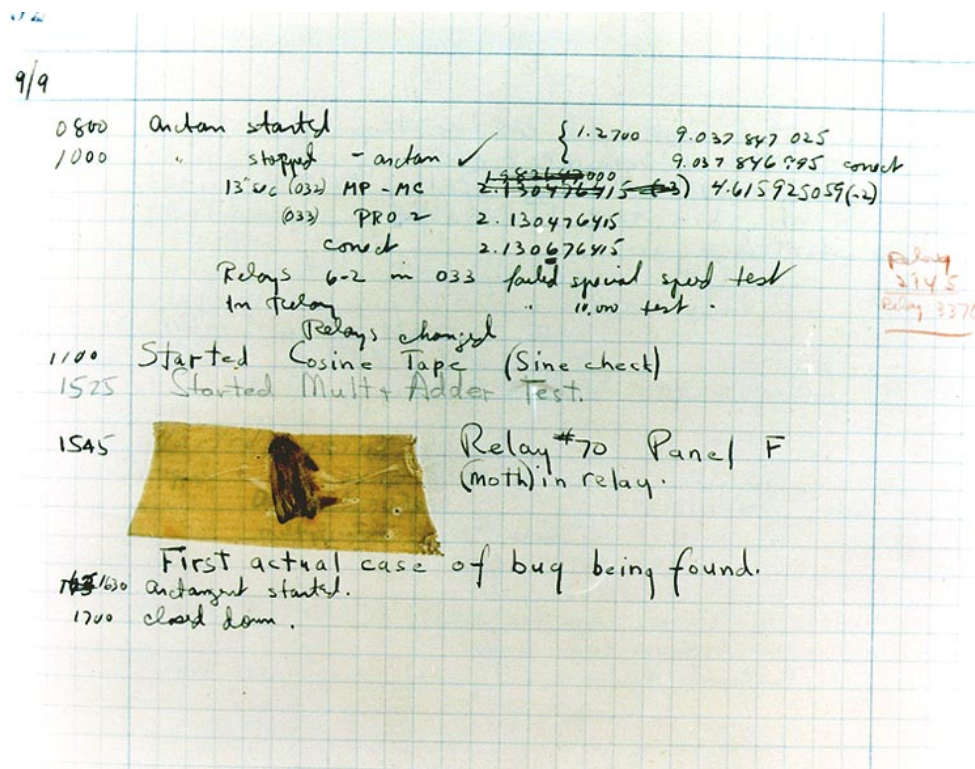 9/9
0800 arctan started { 1.2700 9.037 847 025
1000 " stopped - arctan ✓ { 9.037 846 995 correct
13" sec (032) MP - MC 2.130476415 (-3) 4.615925059(-2)
(033) PRO 2 2.130476415
correct 2.130676415
Relays 6-2 in 033 failed special speed test
In Relay " 10,000 test .
Relays changed
Relay
2145
Relay 3370
1100 Started Cosine Tape (Sine check)
1525 Started Mult + Adder Test.
1545 Relay #70 Panel F
(moth) in relay.
First actual case of bug being found.
1630 arctangent started.
1700 closed down.